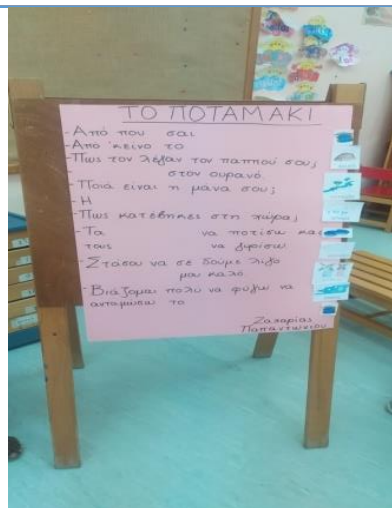 ΤΟ ΠΟΤΑΜΑΚΙ
- Από που σαι
- Απο 'κείνο το
- Πως τον λέγαν τον παππού σου;
στον ουρανό.
- Ποιά είναι η μάνα σου;
- Η
- Πως κατέβηκες στη χώρα;
- Τα να ποτίσω και
τους να γυρίσω
- Στάσου να σε δούμε λίγο
μου καλό.
- Βιάζομαι πολύ να φύγω να
ανταμώσω το
Ζαχαρίας
Παπαντωνίου